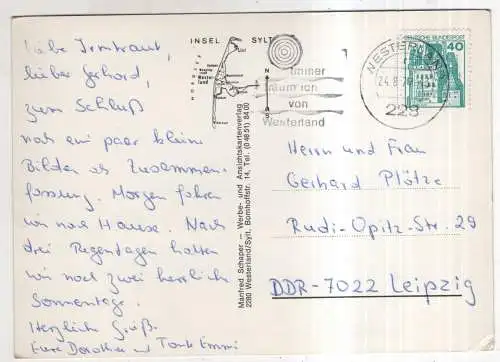 Liebe Irmtraut,
lieber Gerhard,
zum Schluß
noch ein paar kleine
Bilder als Zusammen-
fassung. Morgen fahren
wir nach Hause. Nach
drei Regentagen hatten
wir noch zwei herrlich
Sonnentage.
Herzlich Grüße
Eure Dorothea und Tante Emmi
INSEL SYLT
List
Westerland
N
S
Manfred Schaper – Werbe- und Ansichtskartenverlag
2280 Westerland/Sylt, Bomhoffstr. 14, Tel. (0 46 51) 84 00
Immer
träum ich
von
Westerland
WESTERLAND
24.8.
228
DEUTSCHE BUNDESPOST
40
Herrn und Frau
Gerhard Plötze
Rudi-Opitz-Str. 29
DDR-7022 Leipzig